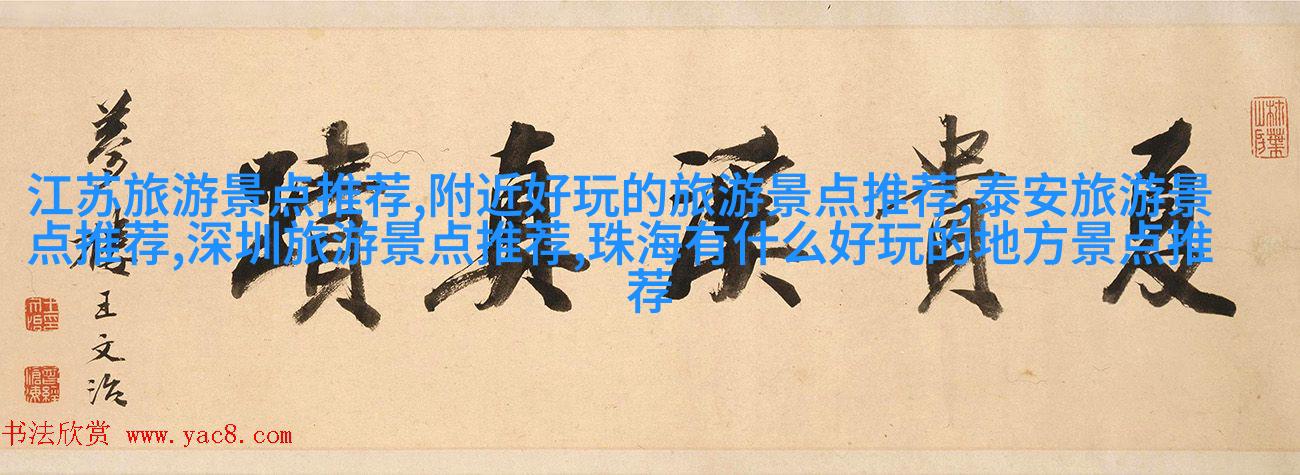 夏貴溪真蹟
夢樓王文治
江苏旅游景点推荐,附近好玩的旅游景点推荐,泰安旅游景
点推荐,深圳旅游景点推荐,珠海有什么好玩的地方景点推
荐
书法欣赏 www.yac8.com